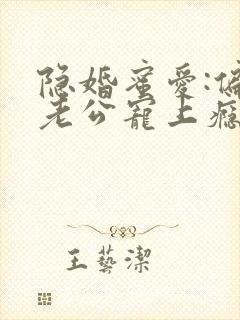 隐婚蜜爱:偏
老公宠上瘾
王艺洁